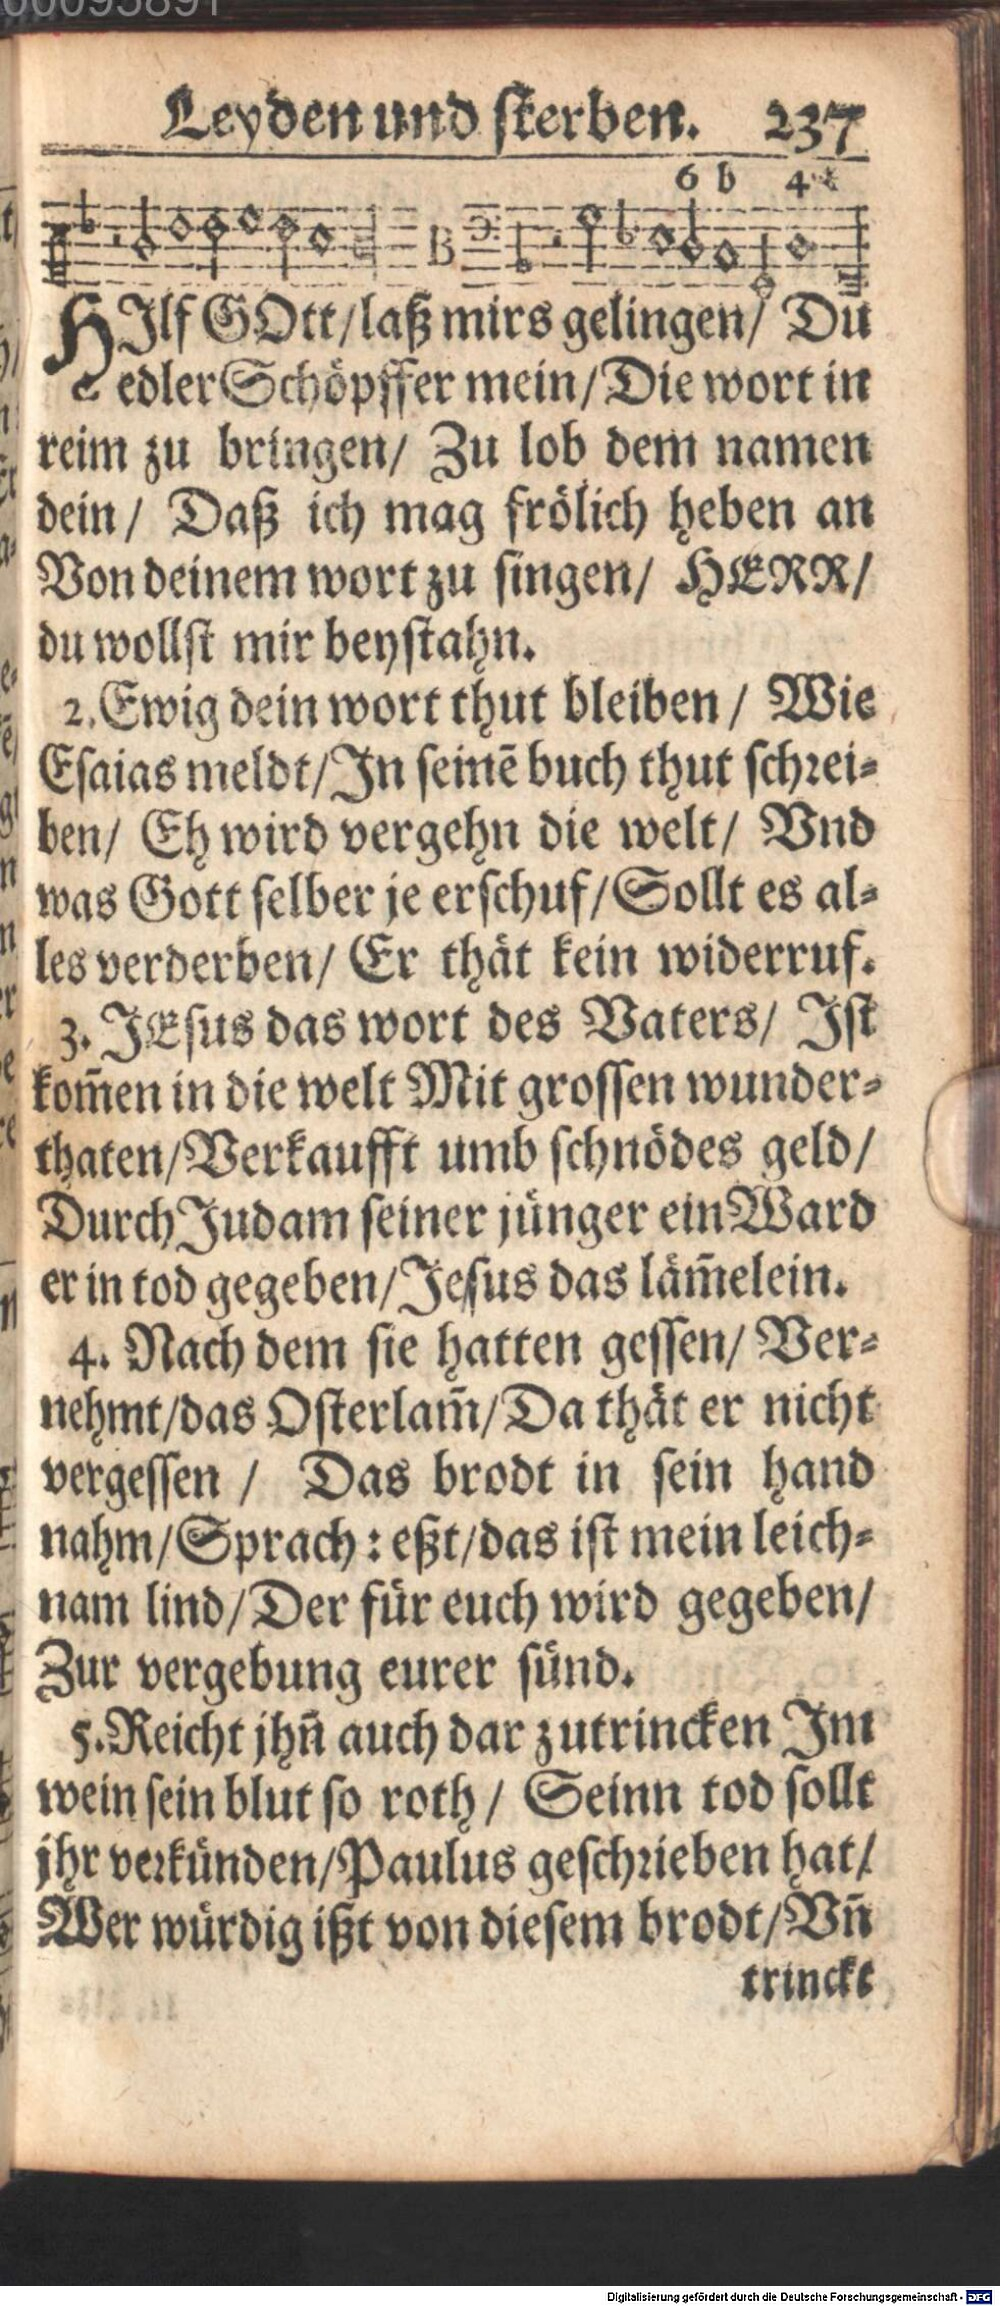 Leyden und sterben. 237
6 b 4
B
HIlf GOtt/laß mirs gelingen/ Du
edler Schöpffer mein/Die wort in
reim zu bringen/ Zu lob dem namen
dein/ Daß ich mag frölich heben an
Von deinem wort zu singen/ HERR/
du wollst mir beystahn.
2. Ewig dein wort thut bleiben/ Wie
Esaias meldt/In seinē buch thut schrei-
ben/ Eh wird vergehn die welt/ Vnd
was Gott selber je erschuf/Sollt es al-
les verderben/ Er thät kein widerruf.
3. JEsus das wort des Vaters/ Ist
kom̄en in die welt Mit grossen wunder-
thaten/Verkaufft umb schnödes geld/
Durch Judam seiner jünger ein Ward
er in tod gegeben/Jesus das läm̄elein.
4. Nach dem sie hatten gessen/ Ver-
nehmt/das Osterlam̄/Da thät er nicht
vergessen/ Das brodt in sein hand
nahm/Sprach: eßt/das ist mein leich-
nam lind/Der für euch wird gegeben/
Zur vergebung eurer sünd.
5. Reicht jhn̄ auch dar zutrincken Im
wein sein blut so roth/ Seinn tod sollt
jhr verkünden/Paulus geschrieben hat/
Wer würdig ißt von diesem brodt/Vn̄
trinckt
Digitalisierung gefördert durch die Deutsche Forschungsgemeinschaft - DFG